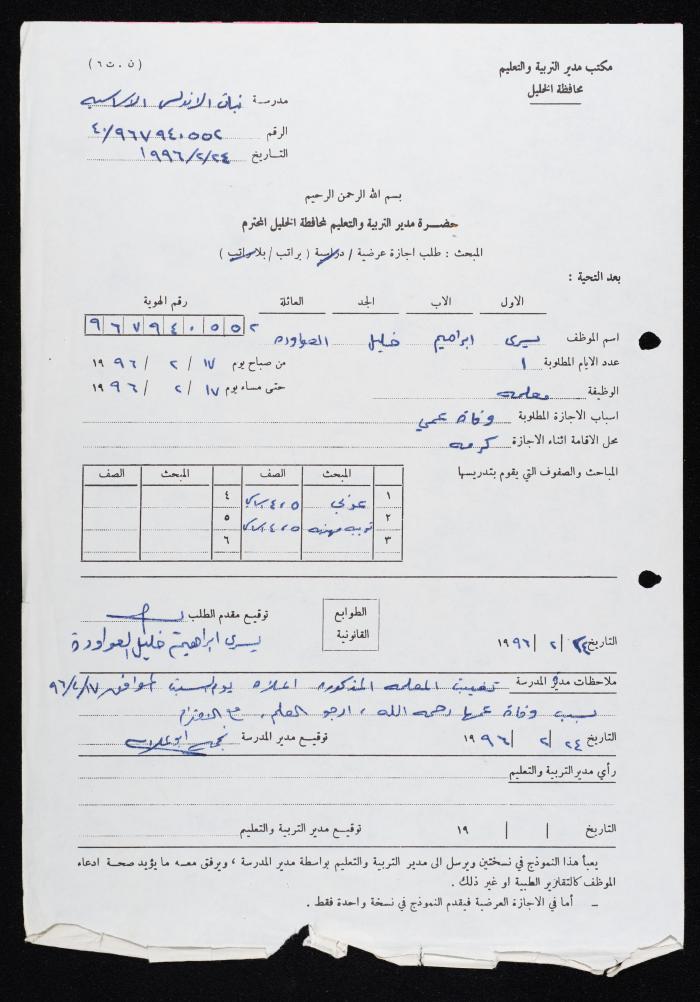 مكتب مدير التربية والتعليم
محافظة الخليل
(ن . ت ٦)
مدرسة بنات الاندلس الاساسيه
الرقم ٤٠/٩٦٧٩٤٠٥٥٢
التاريخ ١٩٩٦/٢/٢٤
بسم الله الرحمن الرحيم
حضرة مدير التربية والتعليم لمحافظة الخليل المحترم
المبحث : طلب اجازة عرضية / دراسية ( براتب / بلا راتب )
بعد التحية :
الاول الاب الجد العائلة رقم الهوية
اسم الموظف يسرى ابراهيم خليل العواوده ٩٦٧٩٤٠٥٥٢
عدد الايام المطلوبة ١ من صباح يوم ١٧ / ٢ / ١٩٩٦
الوظيفة معلمه حتى مساء يوم ١٧ / ٢ / ١٩٩٦
اسباب الاجازة المطلوبة وفاة عمي
محل الاقامة اثناء الاجازة كرمه
المباحث والصفوف التي يقوم بتدريسها
المبحث الصف المبحث الصف
١ ٤،٥ ٤
٢ تربيه مهنيه ٤،٥ ٥
٣ ٦
التاريخ ٢٤ / ٢ / ١٩٩٦ الطوابع القانونية توقيع مقدم الطلب
يسرى ابراهيم خليل العواودة
ملاحظات مدير المدرسة تغيبت المعلمه المذكوره اعلاه يوم السبت الموافق ٩٦/٢/١٧
بسبب وفاة عمها رحمه الله ، ارجو العلم . مع الاحترام
التاريخ ٢٤ / ٢ / ١٩٩٦ توقيع مدير المدرسة
رأي مدير التربية والتعليم
التاريخ / / ١٩ توقيع مدير التربية والتعليم
يعبأ هذا النموذج في نسختين ويرسل الى مدير التربية والتعليم بواسطة مدير المدرسة ، ويرفق معه ما يؤيد صحة ادعاء
الموظف كالتقارير الطبية او غير ذلك .
ـ أما في الاجازة العرضية فيقدم النموذج في نسخة واحدة فقط .